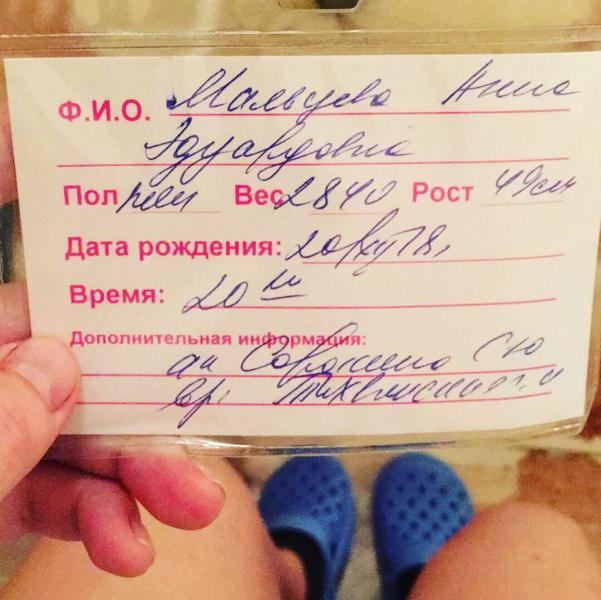 Ф.И.О. Мальцева Анна
Эдуардовна
Пол жен Вес 2840 Рост 49 см
Дата рождения:
Время: 20
Дополнительная информация:
ак Сорокина С Ю
вр: